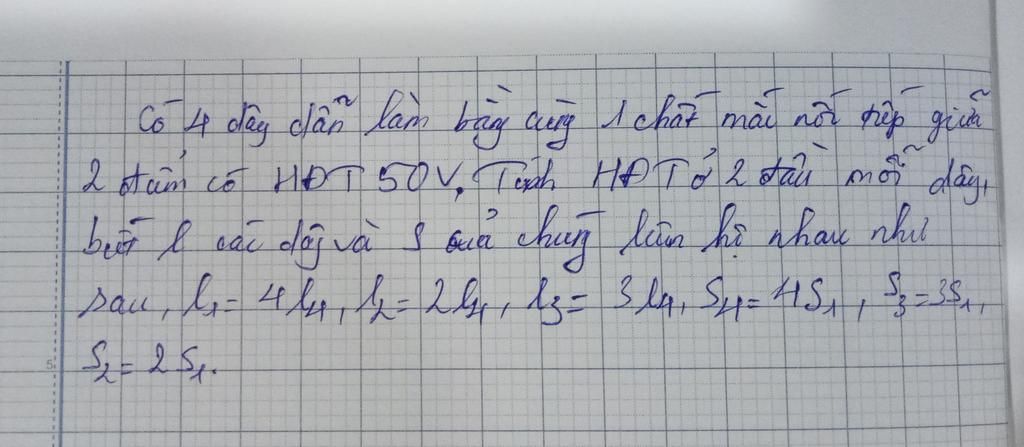 Có 4 dây dẫn làm bằng cùng 1 chất mắc nối tiếp giữa
2 điểm có HĐT 50V, Tính HĐT ở 2 đầu mỗi dây,
biết l các dây và S của chúng liên hệ nhau như
sau, l₁ = 4l₄, l₂ = 2l₄, l₃ = 3l₄, S₄ = 4S₁, S₃ = 3S₁,
S₂ = 2S₁.
5